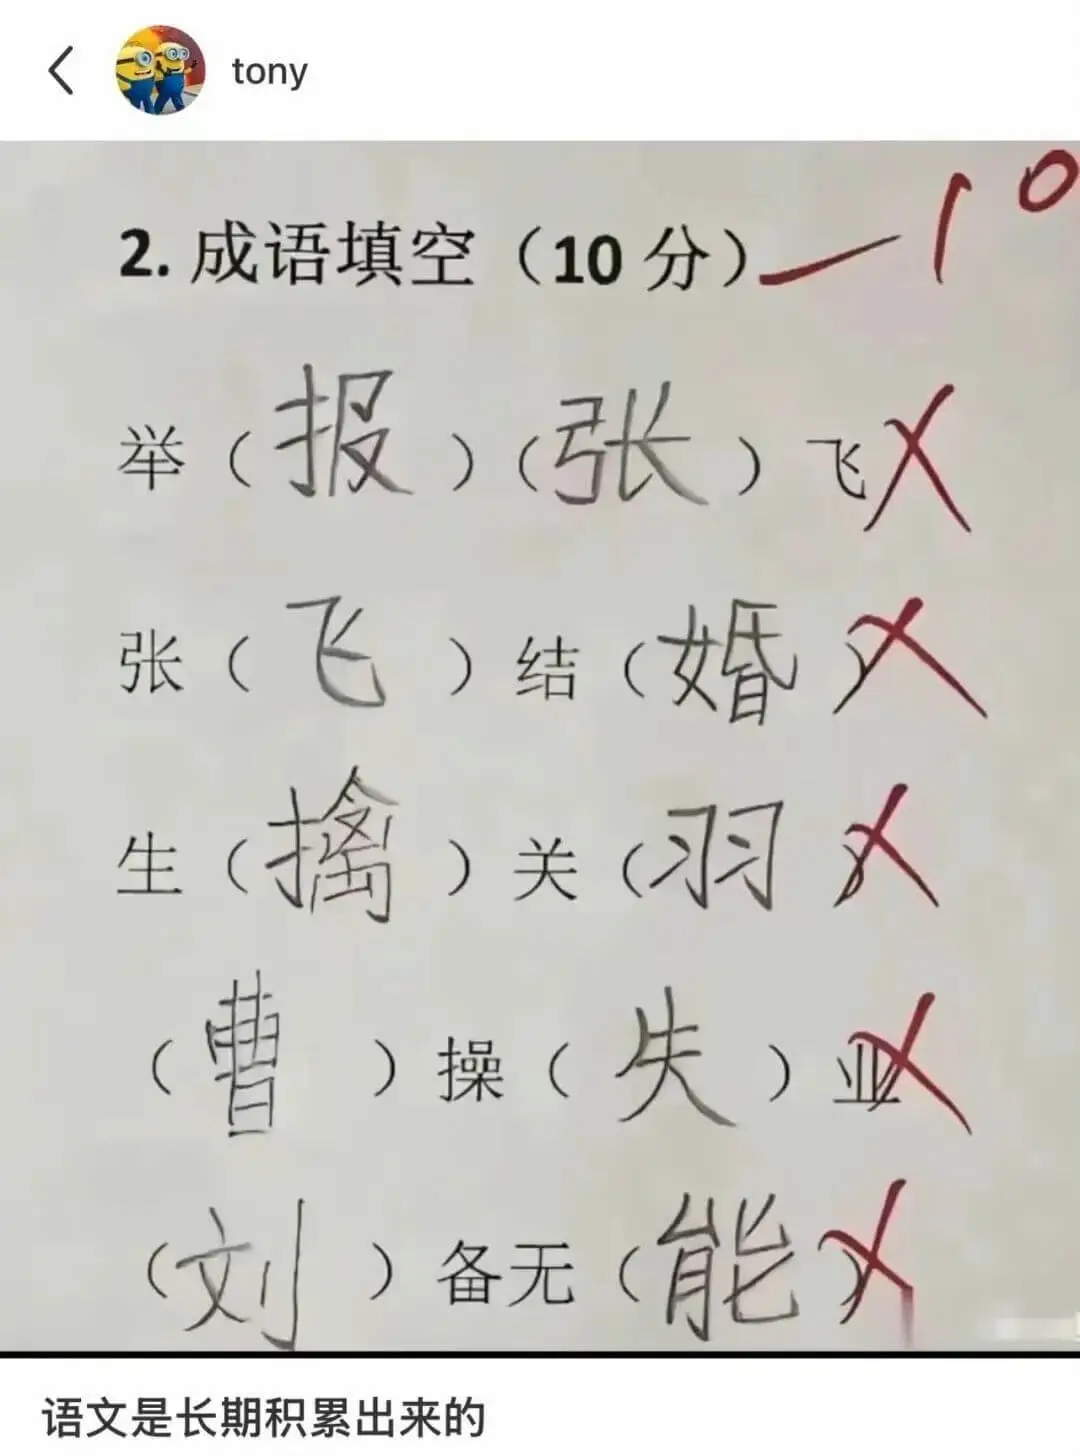 tony
2. 成语填空（10 分） -10
举（报）（张）飞
张（飞）结（婚）
生（擒）关（羽）
（曹）操（失）业
（刘）备无（能）
语文是长期积累出来的